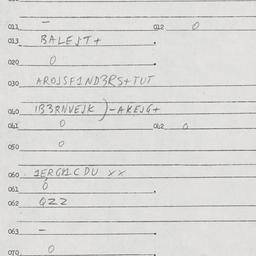 011 – 012 0
013 BALEJT+
020 0
030 AROJSF1ND3RS+TUT
040 1B3RNVEJK)-AKEJG+
041 0 042 0
050 0
060 1ERGK1CDU XX
061 0
062 QZZ
063 –
070 0